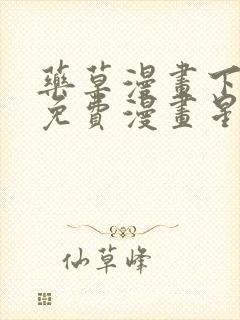 藥草漫畫下
免費漫畫星
仙草峰